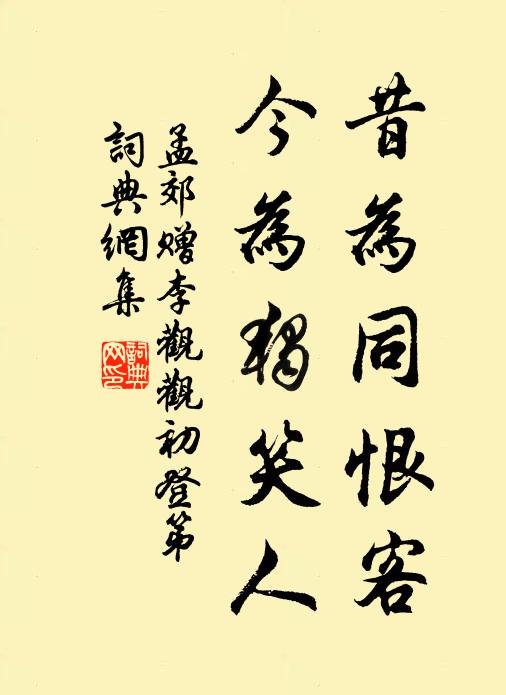 昔為同恨客
今為獨笑人
孟郊贈李觀觀初登第
詞典網集
詞典網印